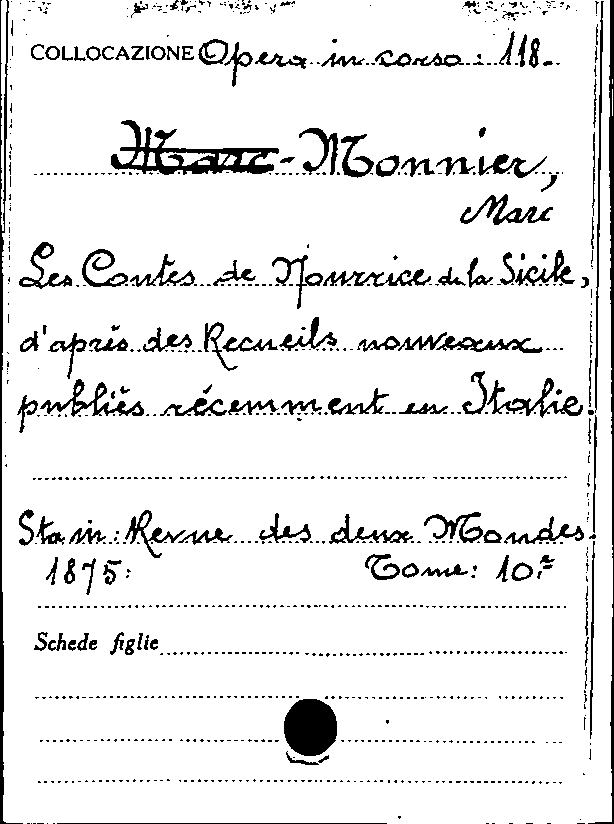 COLLOCAZIONE Opera in corso: 118.
Marc-Monnier,
Marc
Les Contes de Nourrice de la Sicile,
d'après des Recueils nouveaux
publiés récemment en Italie.
Sta in: Revue des deux Mondes.
1875: Tome: 10.º
Schede figlie